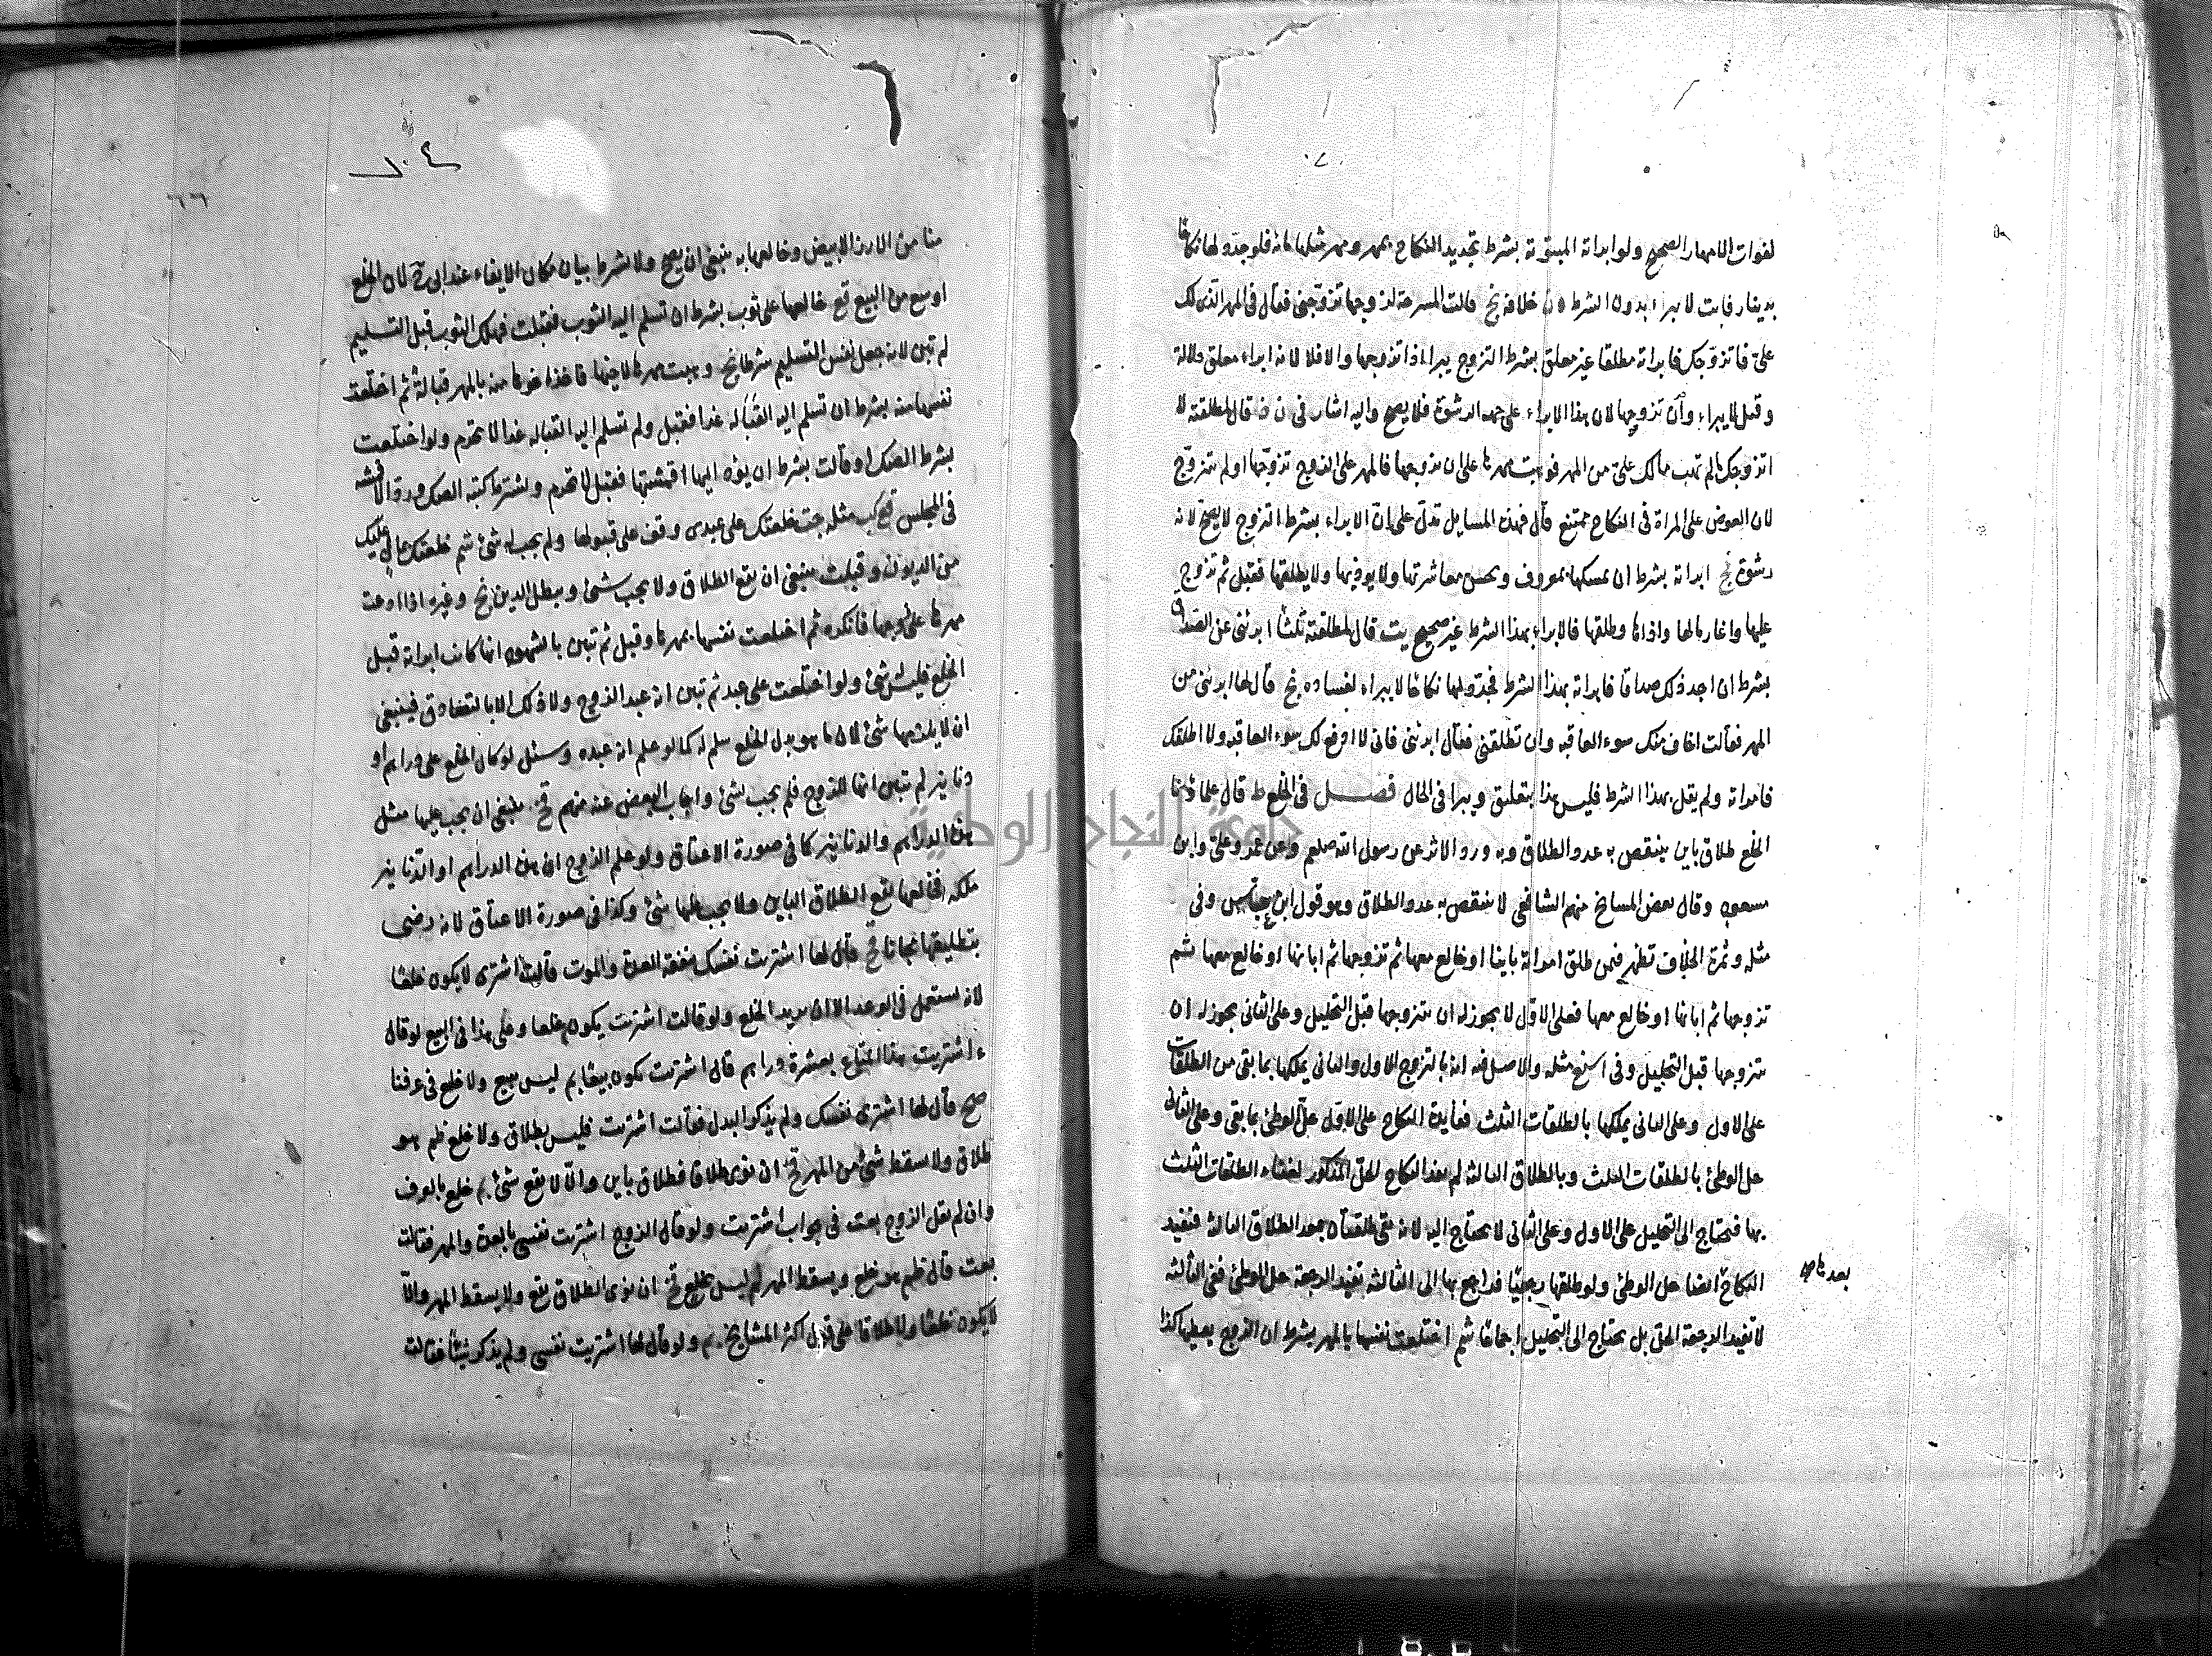 لفوات الامهار الصحيح ولو ابراته المبتوتة بشرط تجديد النكاح بمهر ومهر مثلها مائة فلو جدد لها نكاحا
بدينار فابت لا يبرا بدون الشرط خلافه نخ قالت المسرحة لزوجها تزوجني فقال هبي المهر الذي لك
علي فاتزوجك فابراته مطلقا غير معلق بشرط التزوج يبراء اذا تزوجها والا فلا لانه ابراء معلق دلالة
وقيل لا يبراء وان تزوجها لان هذا الابراء على جهة الرشوة فلا يصح واليه اشار في قال لمطلقته لا
اتزوجك ما لم تهب مالك علي من المهر فوهبت مهرها على ان يتزوجها فالمهر على الزوج تزوجها او لم يتزوج
لان العوض على المراة في النكاح ممتنع قال فهذه المسايل تدل على ان الابراء بشرط التزوج لا يصح لانه
رشوة نخ ابراته بشرط ان يمسكها بمعروف ويحسن معاشرتها ولا يوذيها ولا يطلقها فقبل ثم تزوج
عليها واغار مالها واذاها وطلقها فالابراء بهذا الشرط غير صحيح يت قال لمطلقته ثلثا ابرئني عن الصداق
بشرط ان اجدد لك صداقا فابراته بهذا الشرط فجدد لها نكاحا لا يبراء لفساده نخ قال لها ابرئني من
المهر فقالت اخاف منك سوء العاقبة وان تطلقني فقال ابرئني فاني لا ارفع لك سوء العاقبة ولا اطلقك
فابراته ولم يقل بهذا الشرط فليس هذا بتعليق ويبرا في الحال فصل في الخلع ط قال علماؤنا
الخلع طلاق باين ينتقص به عدد الطلاق وبه ورد الاثر عن رسول الله صلعم وعن عمر وعلي وابن
مسعود وقال بعض المشايخ منهم الشافعي لا ينتقص به عدد الطلاق وهو قول ابن عباس وفي
مثله وثمرة الخلاف تظهر فيمن طلق امراته باينا او خالع معها ثم تزوجها ثم ابانها او خالع معها ثم
تزوجها ثم ابانها او خالع معها فعلى الاول لا يجوز له ان يتزوجها قبل التحليل وعلى الثاني يجوز له ان
يتزوجها قبل التحليل وفي مثله والاصل فيه انه بالتزوج الاول والثاني يملكها بما بقي من الطلقات
على الاول وعلى الثاني يملكها بالطلقات الثلث ففايدة النكاح على الاول حل الوطئ بما بقي وعلى الثاني
حل الوطئ بالطلقات الثلث وبالطلاق الثالث لم يفد النكاح الحل المذكور لفناء الطلقات الثلث
بها فيحتاج الى التحليل على الاول وعلى الثاني لا يحتاج اليه لانه بقي طلقتان بعد الطلاق الثالث فيفيد
النكاح ايضا حل الوطئ ولو طلقها رجعيا فراجع بها الى الثالثة تفيد الرجعة حل الوطئ ففي الثالثة
بعدها
لا تفيد الرجعة الحل بل يحتاج الى التحليل اجماعا شم اختلعت نفسها بالمهر بشرط ان الزوج يعطيها كذا
٦٦
منا من الارز الابيض وخالعها به ينبغي ان يصح ولا يشترط بيان مكان الايفاء عند ابي ح لان الخلع
اوسع من البيع قع خالعها على ثوب بشرط ان تسلم اليه الثوب فقبلت فهلك الثوب قبل التسليم
لم تبن لانه جعل نفس التسليم شرطا نخ وهبت مهرها لاخيها فاخذ اخوها منه بالمهر قبالة ثم اختلعت
نفسها منه بشرط ان تسلم اليه القبالة غدا فقبل ولم تسلم اليه القبالة غدا لا تحرم ولو اختلعت
بشرط الصك او قالت بشرط ان يؤد اليها اقمشتها فقبل لا تحرم ويشترط كتبة الصك ورد الاقمشة
في المجلس قع كب مثله جت خلعتك على عبدي وقف على قبولها ولم يجب له شئ شم خلعتك بما لي عليك
من الديون وقبلت ينبغي ان يقع الطلاق ولا يجب شئ ويبطل الدين نخ وغيره اذا ادعت
مهرها على زوجها فانكره ثم اختلعت نفسها بمهرها وقبل ثم تبين بالشهود انها كانت ابراته قبل
الخلع فليس شئ ولو اختلعت على عبد ثم تبين انه عبد الزوج ولا ذلك الا بالتصادق فينبغي
ان لا يلزمها شئ لان ما هو بدل الخلع سلم له كما لو علم انه عبده وسئل لو كان الخلع على دراهم او
دنانير ثم تبين انها للزوج فلم يجب شئ واجاب البعض عنه منهم قخ ينبغي ان يجب عليها مثل
هذه الدراهم والدنانير كما في صورة الاعتاق ولو علم الزوج ان هذه الدراهم او الدنانير
ملكه فخالعها يقع الطلاق الباين ولا يجب عليها شئ وكذا في صورة الاعتاق لانه رضي
بتطليقها مجانا قال لها اشتريت نفسك بنفقة العدة والموت قالت اشتري لا يكون خلعا
لانه يستعمل في الوعد الا ان يريد الخلع ولو قالت اشتريت يكون خلعا وعلى هذا في البيع لو قال
اشتريت هذا المتاع بعشرة دراهم قال اشتريت يكون بيعا بم ليس ببيع ولا خلع في عرفنا
صح قال لها اشتري نفسك ولم يذكر البدل فقالت اشتريت فليس بطلاق ولا خلع ظم هو
طلاق ولا يسقط شئ من المهر قخ ان نوى طلاقا فطلاق باين والا لا يقع شئ بم خلع بالعرف
وان لم يقل الزوج بعت في جواب اشتريت ولو قال الزوج اشتريت نفسي بالعدة والمهر فقالت
بعت قال ظم هو خلع ويسقط المهر بم ليس بخلع قخ ان نوى الطلاق يقع ولا يسقط المهر والا
لا يكون خلعا ولا طلاقا على قول اكثر المشايخ بم ولو قال لها اشتريت نفسي ولم يذكر شيئا فقالت
جامعة النجاح الوطنية